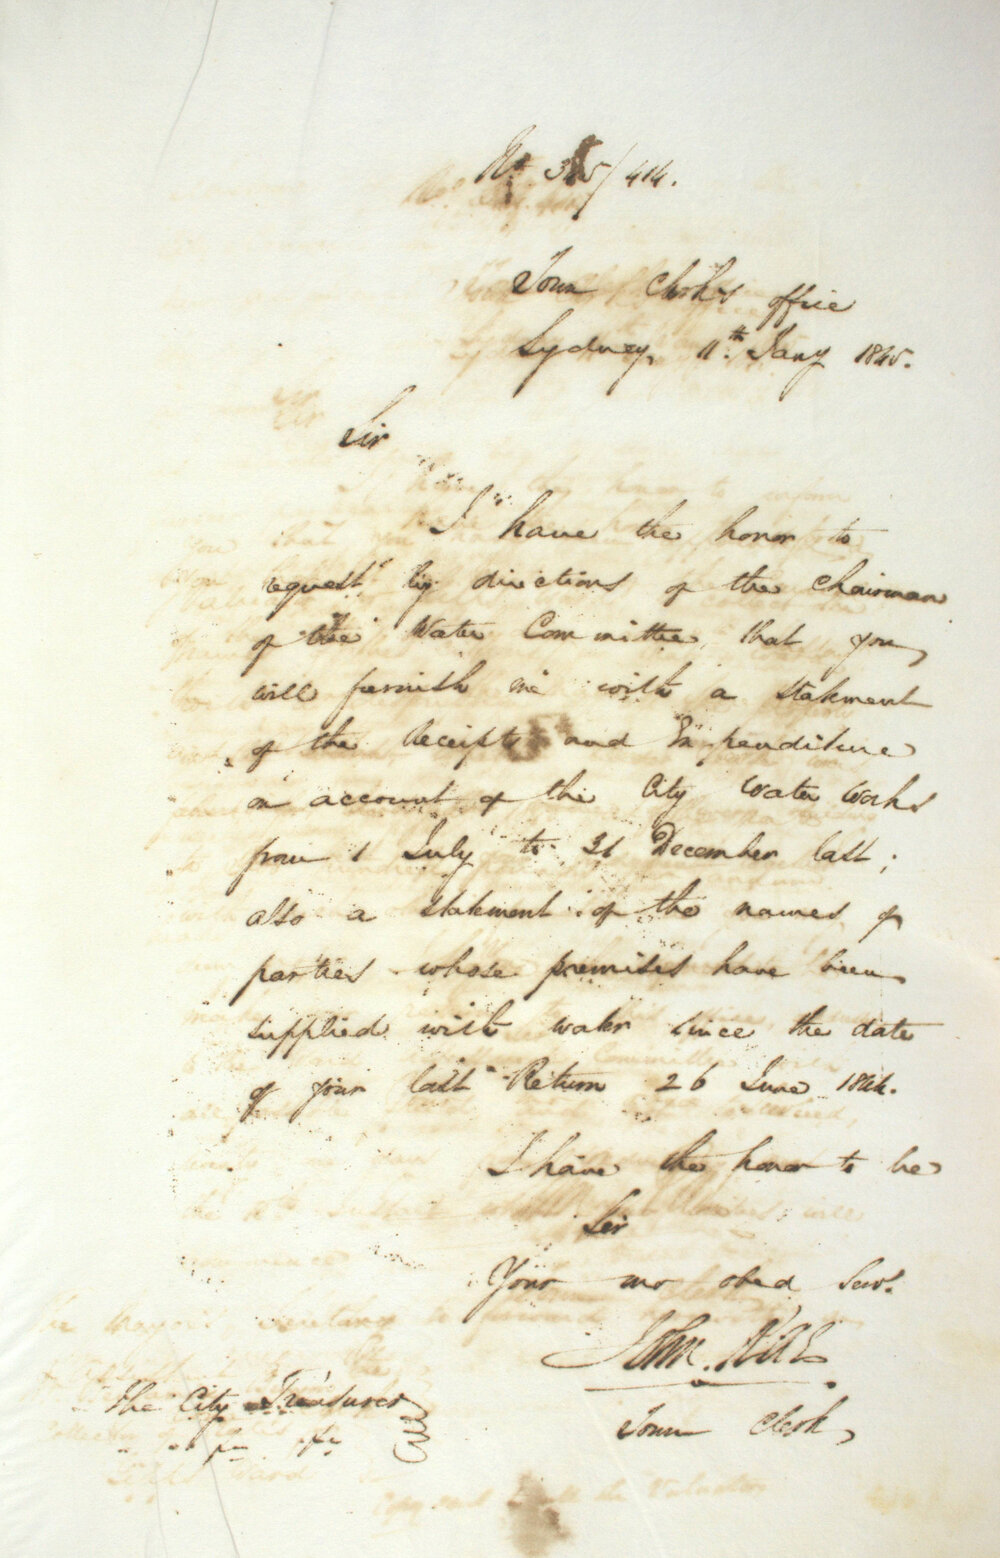 No 315/414.
Town Clerk's office
Sydney, 11th Jany 1845.
Sir
I have the honor to
request by directions of the Chairman
of the Water Committee, that you
will furnish me with a statement
of the Receipts and Expenditure
on account of the City Water Works
from 1 July to 31 December last;
also a statement of the names of
parties whose premises have been
supplied with water since the date
of your last Return 26 June 1844.
I have the honor to be
Sir
Your mo obed Servt.
John
Town Clerk
The City Treasurer